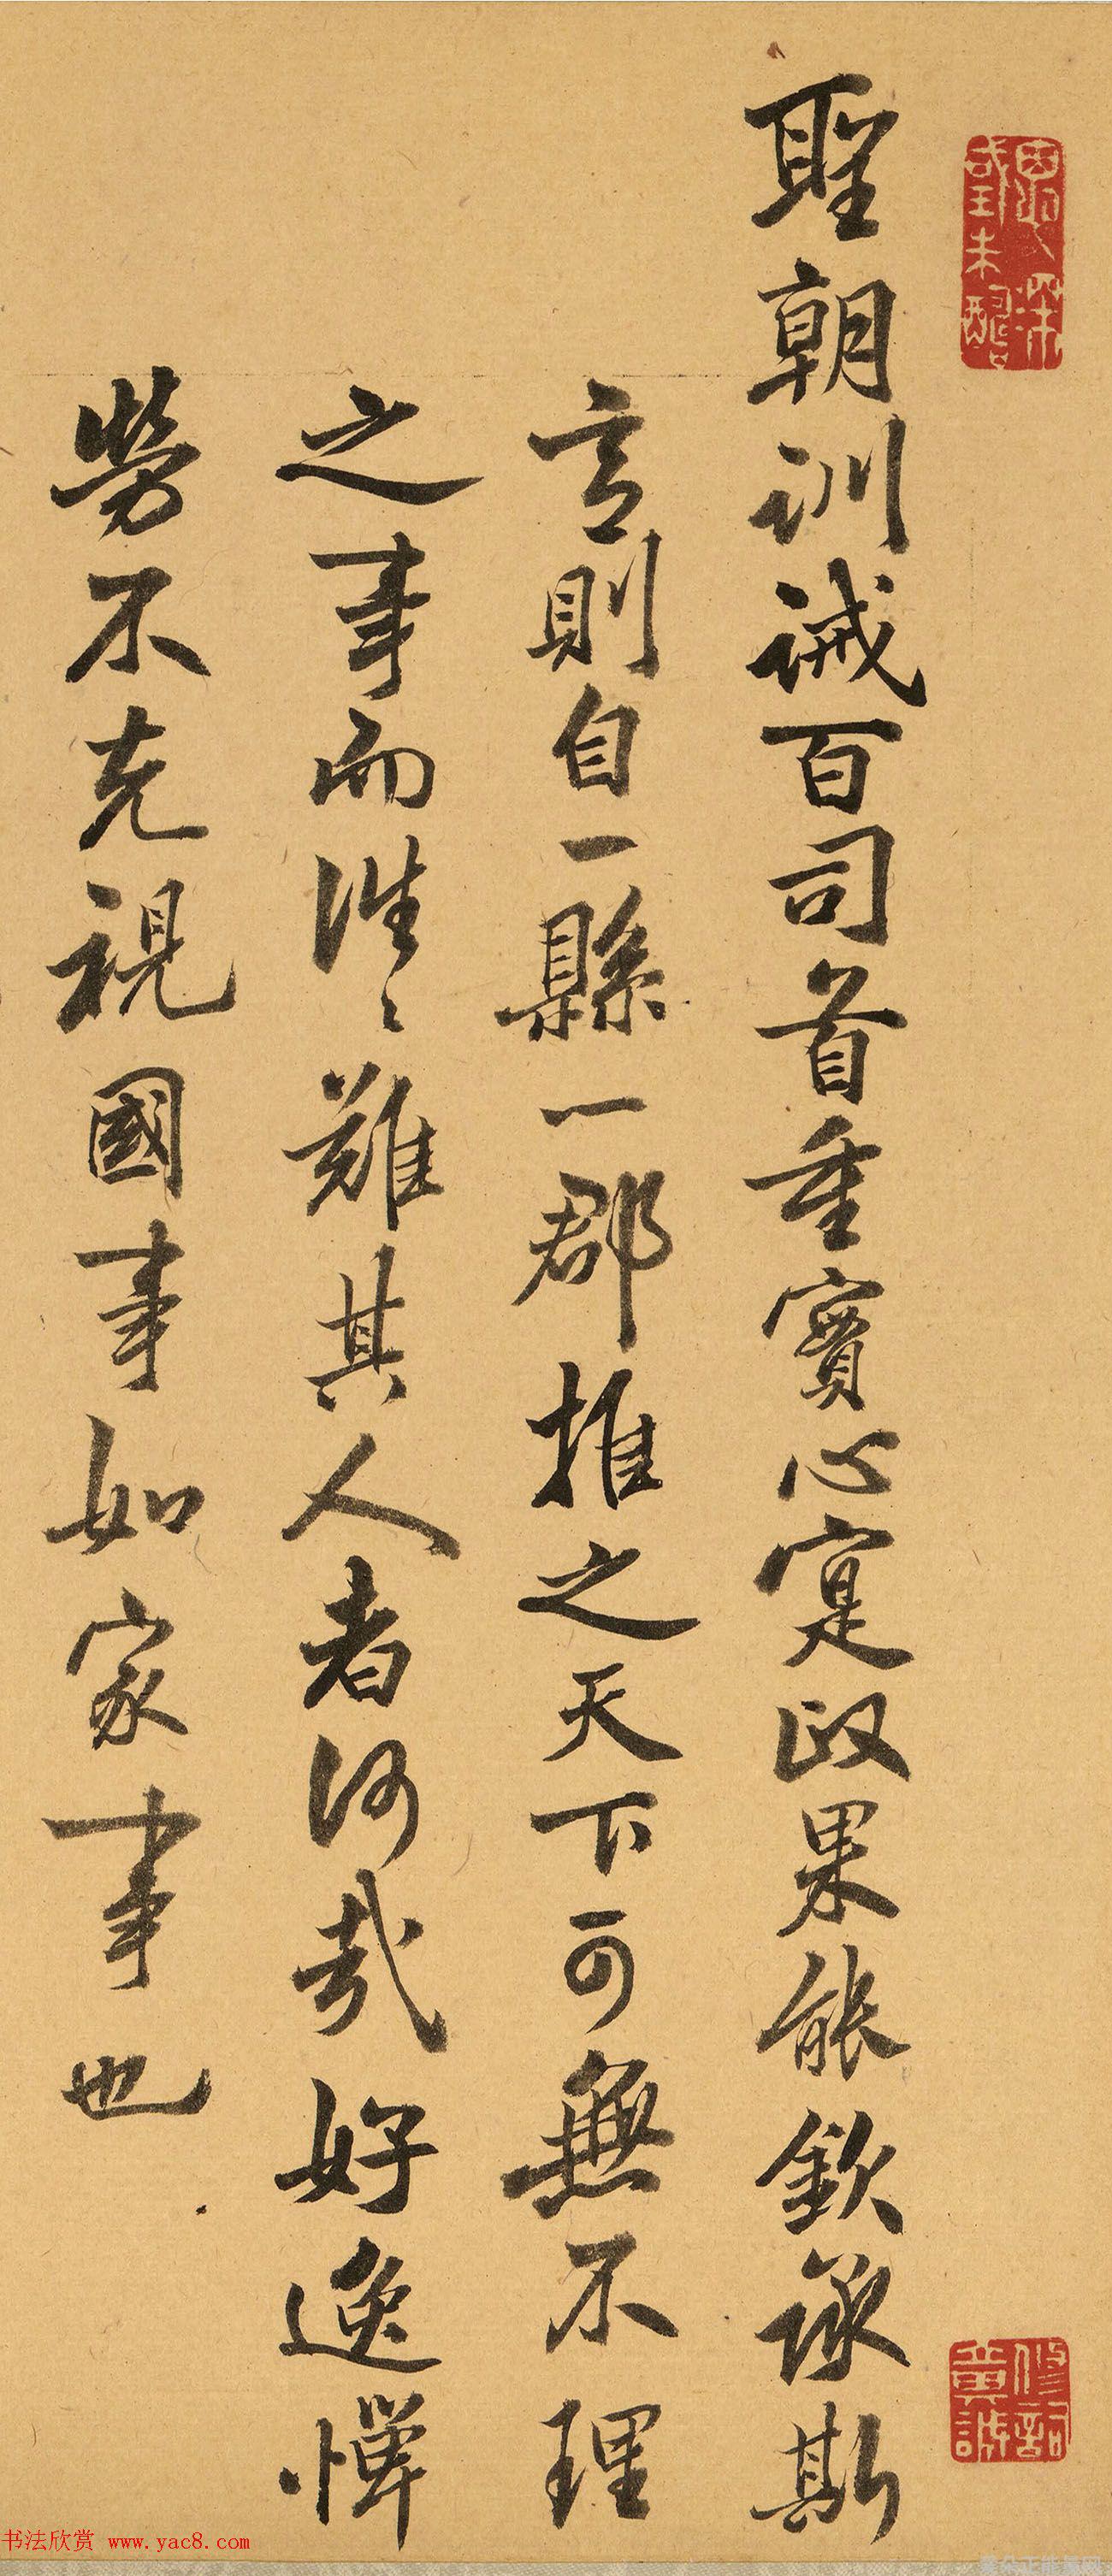 聖朝訓誡百司首重實心寔政果能欽承斯
言則自一縣一郡推之天下可無不理
之事而往〻難其人者何哉好逸憚
勞不克視國事如家事也
书法欣赏 www.yac8.com